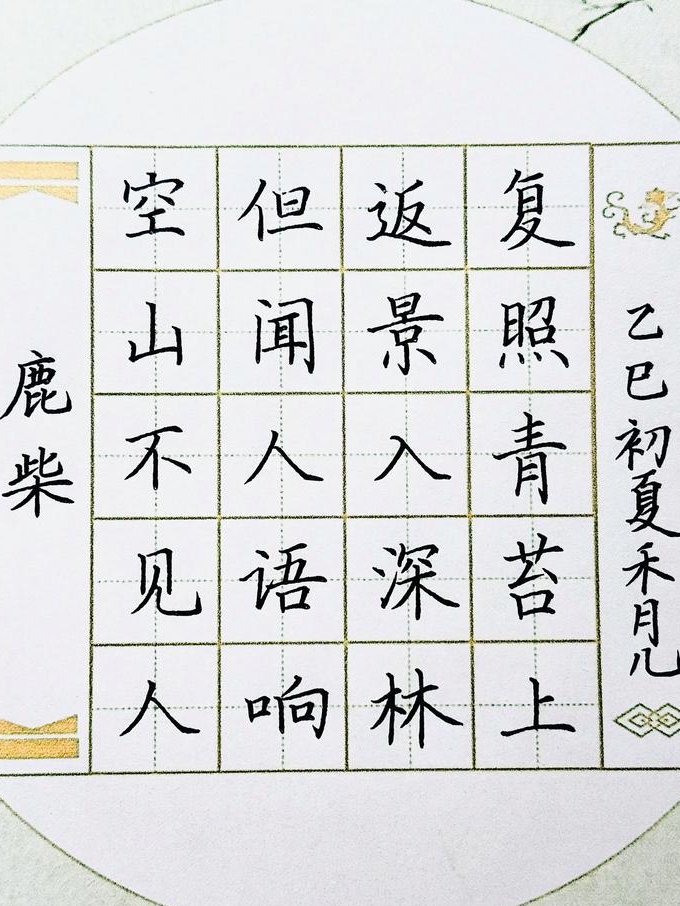 鹿柴
空山不见人
但闻人语响
返景入深林
复照青苔上
乙巳初夏禾月儿